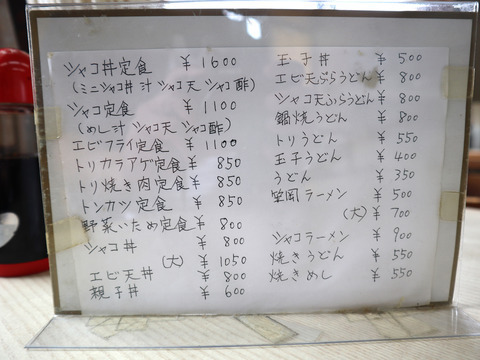 シャコ丼定食 ¥1600
(ミニシャコ丼 汁 シャコ天 シャコ酢)
シャコ定食 ¥1100
(めし汁 シャコ天 シャコ酢)
エビフライ定食 ¥1100
トリカラアゲ定食 ¥850
トリ焼き肉定食 ¥850
トンカツ定食 ¥850
野菜いため定食 ¥800
シャコ丼 ¥800
(大) ¥1050
エビ天丼 ¥800
親子丼 ¥600
玉子丼 ¥500
エビ天ぷらうどん ¥800
シャコ天ぷらうどん ¥800
鍋焼うどん ¥800
トリうどん ¥550
玉子うどん ¥400
うどん ¥350
笠岡ラーメン ¥500
(大) ¥700
シャコラーメン ¥900
焼きうどん ¥550
焼きめし ¥550